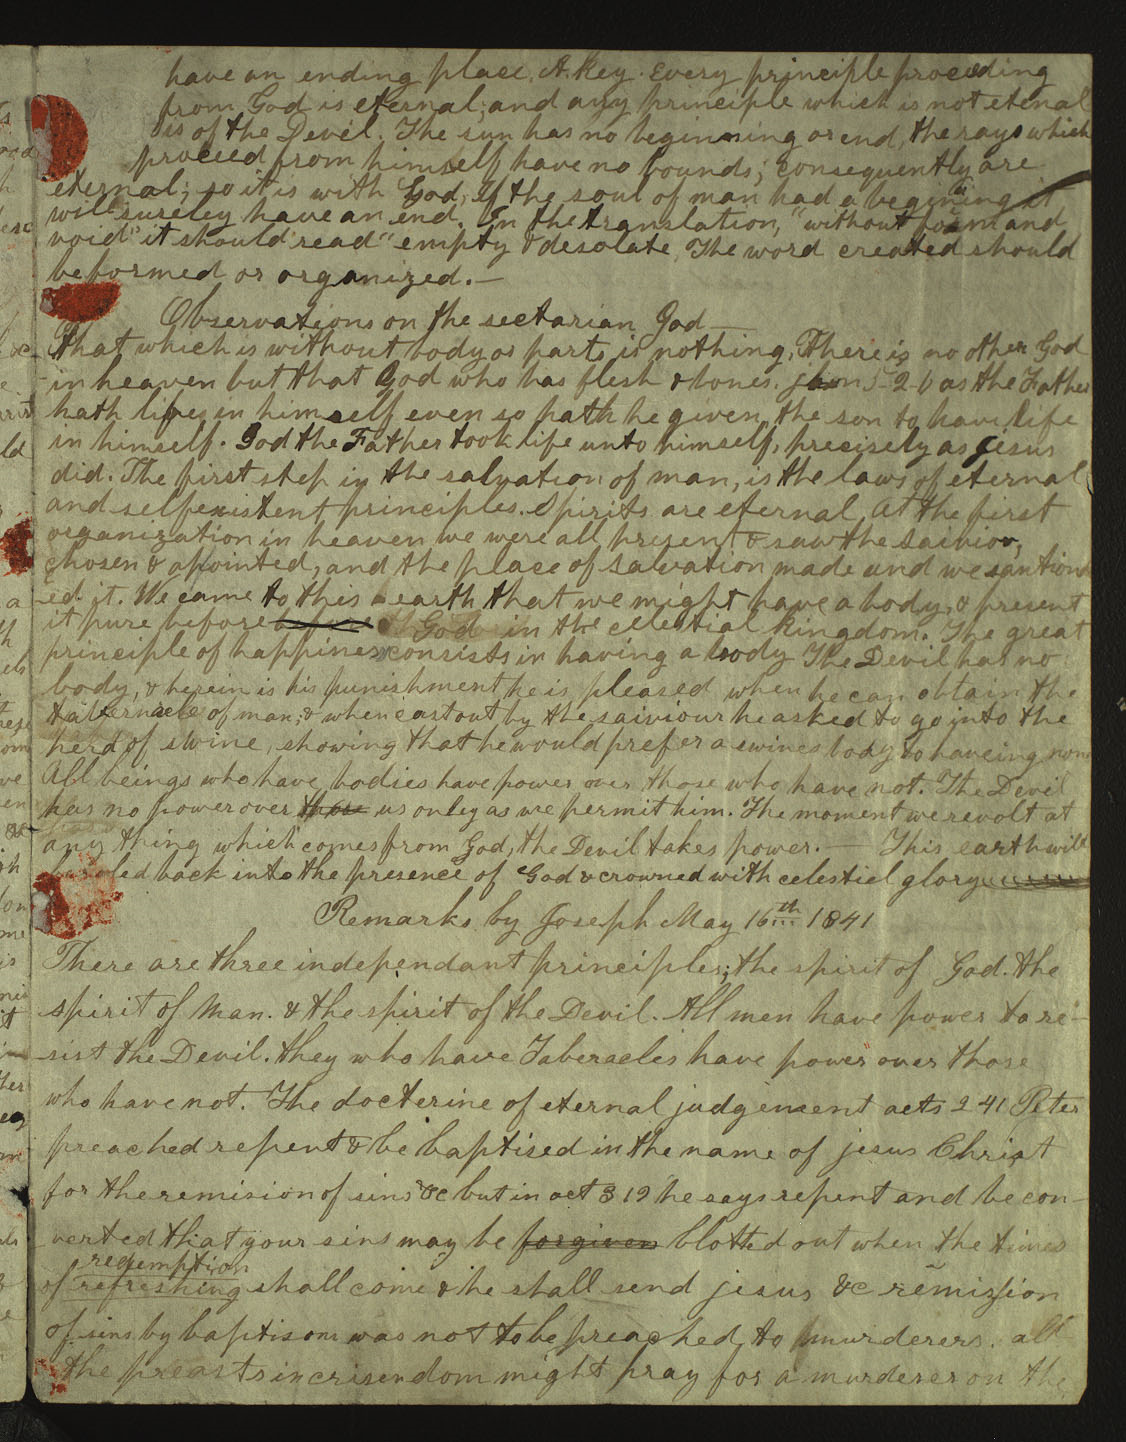 have an ending place, A. key. Every principle proceeding
from God is eternal, and any principle which is not etenal
is of the Devil. The sun has no beginning or end, the rays which
proceed from himself have no bounds, consequently are
eternal; so it is with God, If the soul of man had a begining it
will sureley have an end. In the translation, "without form and
void" it should read" empty & desolate, The word created should
be formed or organized.—
Observations on the sectarian God—
That which is without body or parts is nothing, There is no other God
in heaven but that God who has flesh & bones. John 5-26 as the Father
hath life in himself even so hath he given the son to have life
in himself. God the Father took life unto himself, precisely as jesus
did. The first step in the salvation of man, is the laws of eternal
and selfexistent principles. Spirits are eternal, At the first
organization in heaven we were all present & saw the saivior,
chosen & apointed, and the place of salvation made and we santion
-ed it. We came to this earth that we might have a body, & present
it pure before God in the celestial kingdom. The great
principle of happiness consists in having a body The Devil has no
body, & herein is his punishment he is pleased when he can obtain the
tabernacle of man; & when cast out by the saiviour he asked to go into the
herd of swine, showing that he would prefer a swines body to haveing none
All beings who have bodies have power over those who have not. The Devil
has no power over those us onley as we permit him. The moment we revolt at
any thing which comes from God, the Devil takes power. — This earth will
be roled back into the presence of God & crowned with celestiel glory
Remarks by Joseph May 16th 1841
There are three independant principles; the spirit of God. the
spirit of Man. & the spirit of the Devil. All men have power to re-
-sist the Devil. they who have Taberacles have power over those
who have not. The docterine of eternal judgement acts 2 41 Peter
preached repent & be baptised in the name of jesus Christ
for the remision of sins &c but in act 3 19 he says repent and be con-
verted that your sins may be forgiven blotted out when the times
redemption
of refreshing shall come & he shall send jesus &c remission
of sins by baptism was not to be preached to murderers. all
the preasts in crisendom might pray for a murderer on the